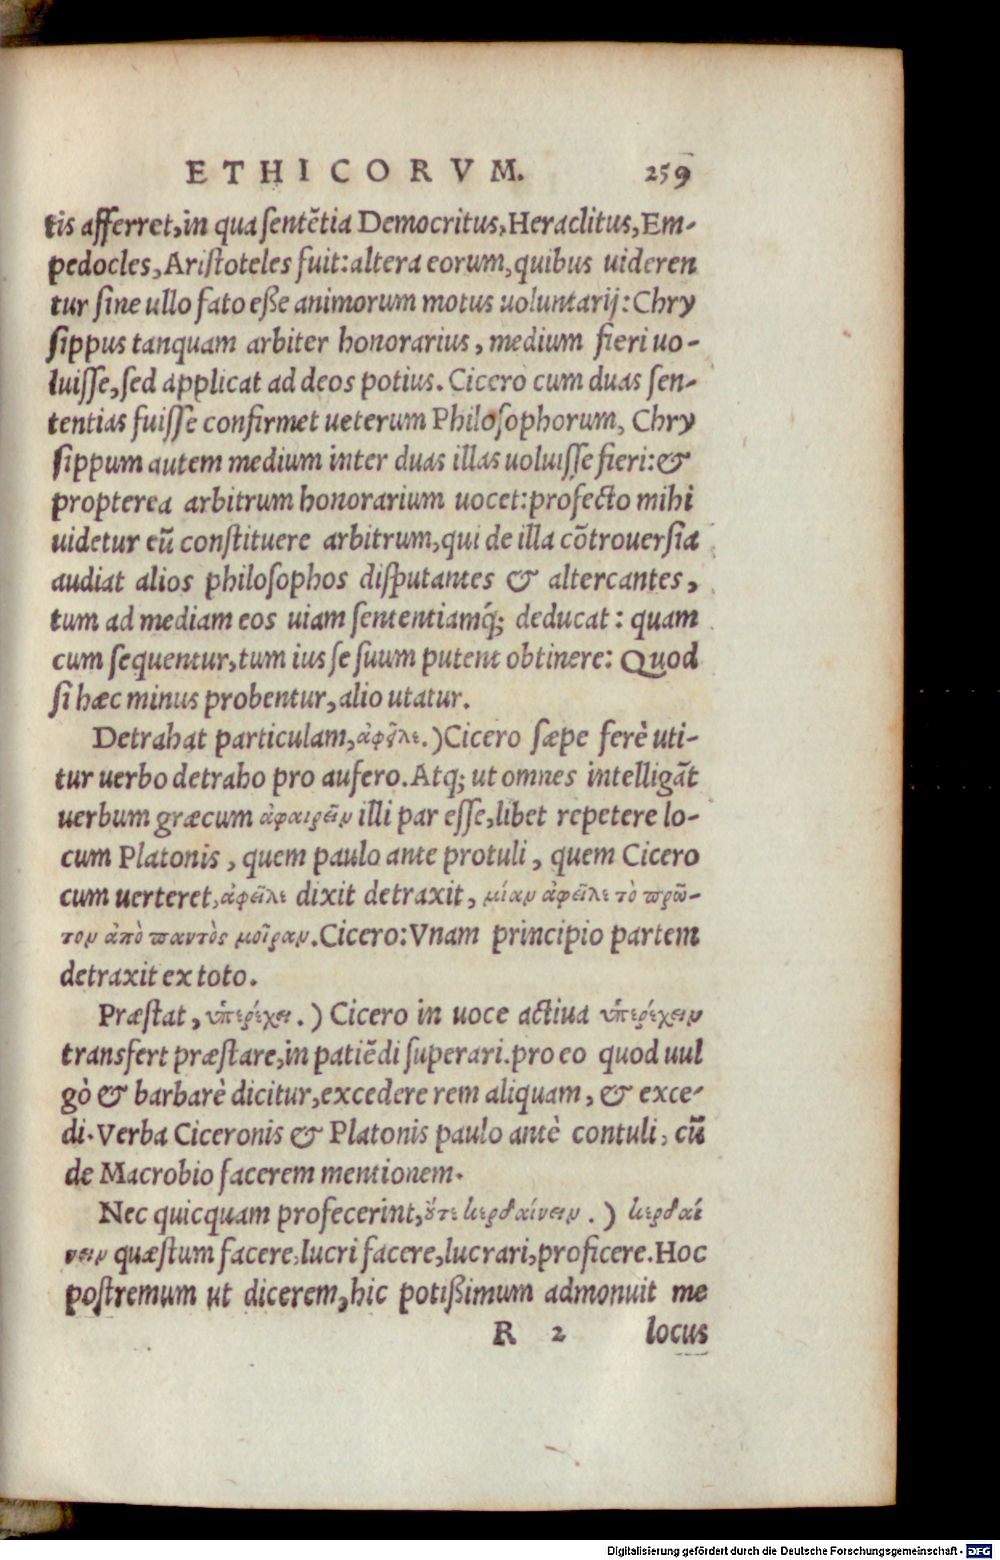 ETHICORVM. 259
tis afferret, in qua sentētia Democritus, Heraclitus, Em-
pedocles, Aristoteles fuit: altera eorum, quibus uideren
tur sine ullo fato eße animorum motus uoluntarij: Chry
sippus tanquam arbiter honorarius, medium fieri uo-
luisse, sed applicat ad deos potius. Cicero cum duas sen-
tentias fuisse confirmet ueterum Philosophorum, Chry
sippum autem medium inter duas illas uoluisse fieri: &
propterea arbitrum honorarium uocet: profecto mihi
uidetur eū constituere arbitrum, qui de illa cōtrouersia
audiat alios philosophos disputantes & altercantes,
tum ad mediam eos uiam sententiamq́; deducat: quam
cum sequentur, tum ius se suum putent obtinere: Quod
si hæc minus probentur, alio utatur.
Detrahat particulam, ἀφεῖλε.) Cicero sæpe ferè uti-
tur uerbo detraho pro aufero. Atq; ut omnes intelligāt
uerbum græcum ἀφαιρεῖν illi par esse, libet repetere lo-
cum Platonis, quem paulo ante protuli, quem Cicero
cum uerteret, ἀφεῖλε dixit detraxit, μίαν ἀφεῖλε τὸ πρῶ-
τον ἀπὸ παντὸς μοῖραν. Cicero: Vnam principio partem
detraxit ex toto.
Præstat, ὑπερέχει.) Cicero in uoce actiua ὑπερέχειν
transfert præstare, in patiēdi superari. pro eo quod uul
gò & barbarè dicitur, excedere rem aliquam, & exce-
di. Verba Ciceronis & Platonis paulo antè contuli, cū
de Macrobio facerem mentionem.
Nec quicquam profecerint, ὅτε κερδαίνειν.) κερδαί
νειν quæstum facere, lucri facere, lucrari, proficere. Hoc
postremum ut dicerem, hic potißimum admonuit me
R 2 locus
Digitalisierung gefördert durch die Deutsche Forschungsgemeinschaft - DFG